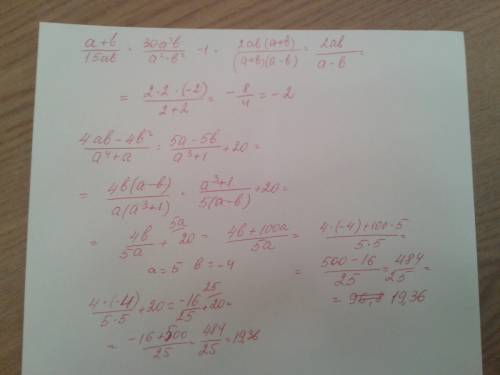 a+b/15ab · 30a²b/a²-b² -1 = 2ab(a+b)/(a+b)(a-b) = 2ab/a-b =
= 2·2·(-2)/2+2 = -8/4 = -2
4ab-4b²/a⁴+a : 5a-5b/a³+1 +20 =
= 4b(a-b)/a(a³+1) · a³+1/5(a-b) +20 =
= 4b/5a + 20 = 4b+100a/5a = 4·(-4)+100·5/5·5 =
a=5 b=-4
= 500-16/25 = 484/25 =
= 19,36
4·(-4)/5·5 +20 = -16/25 +20 =
= -16+500/25 = 484/25 = 19,36